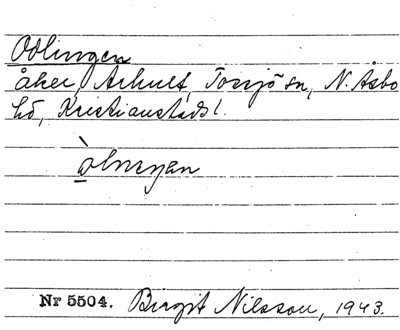 Odlingen
åker, Arhult, Tossjö sn, N. Åsbo
hd, Kristianstads l.
Nr 5504. Birgit Nilsson, 1943.